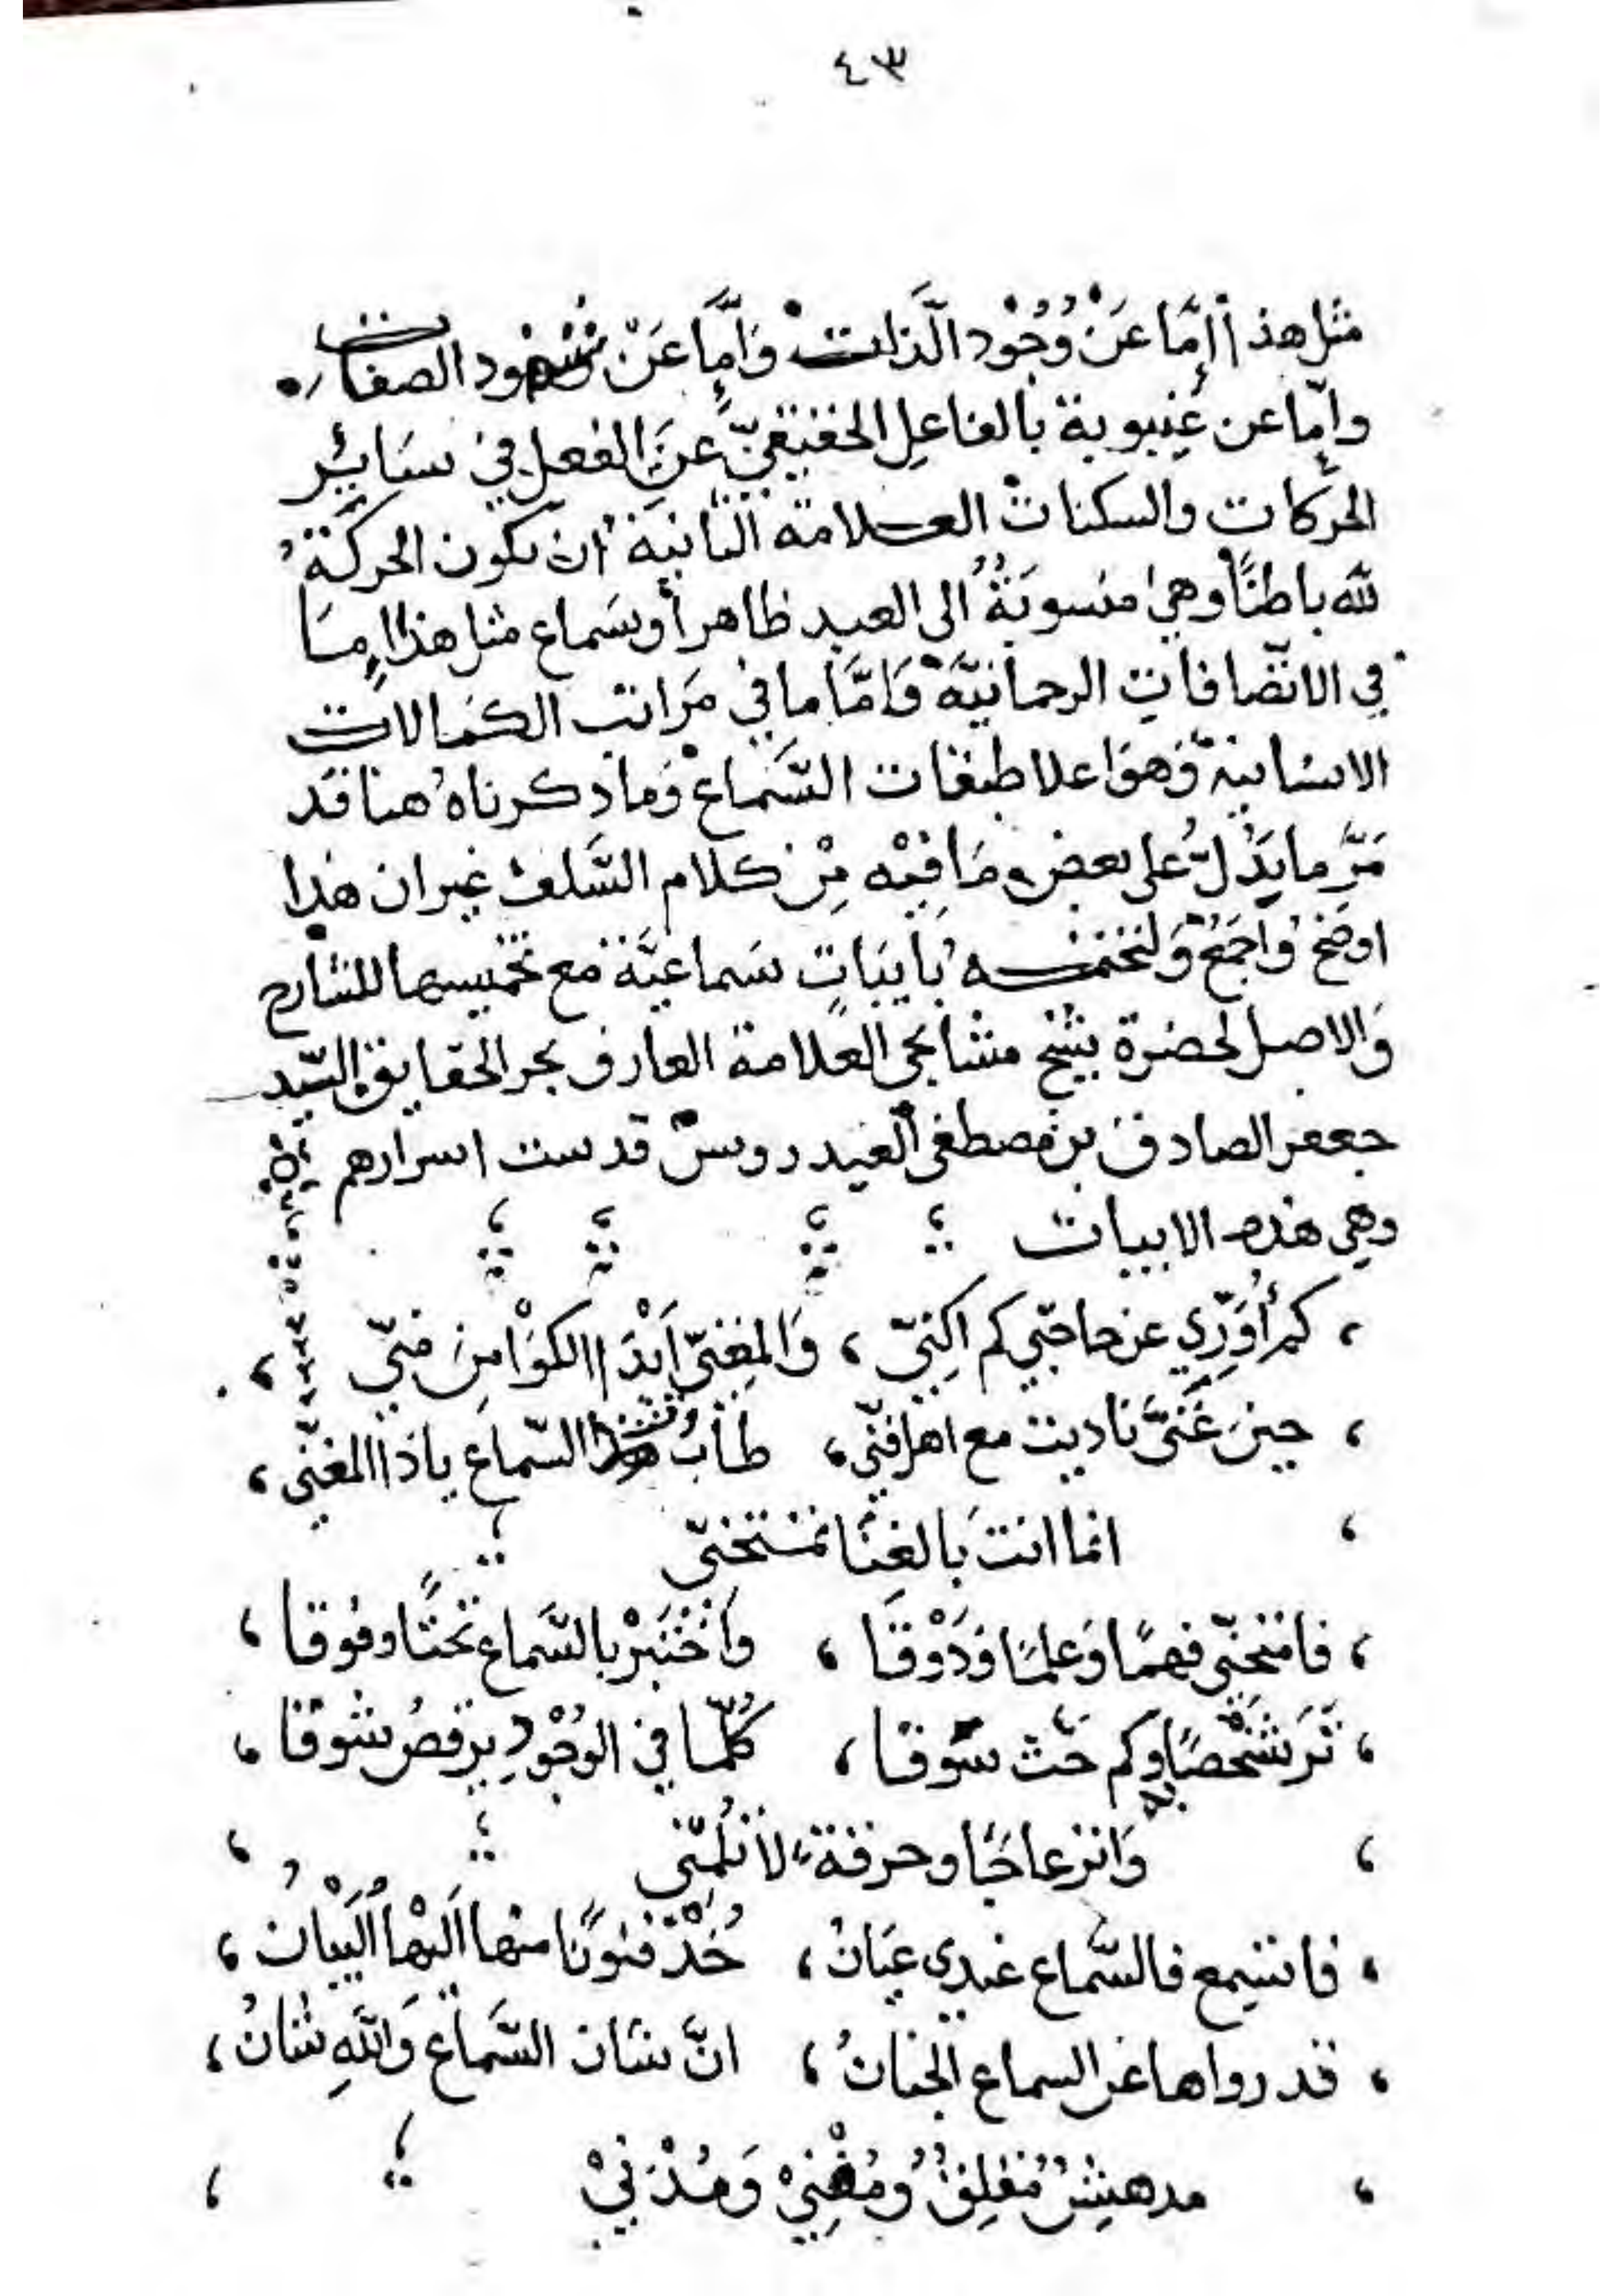 ٤٣
مثل هذا إمّا عَنْ وُجُود الَّذات وَإمّا عَنْ شهود الصفات
وإمّا عن غيبوبة بالفاعلِ الحقيقيّ عَنِ الفعل في سَائِر
الحركات والسكنات العلامة الثانيَة ان تكون الحركَة
لله باطنًا وهي منسوبَةُ الى العبد ظاهراً وسَماع مثل هذا إمّا
في الاتّصافات الرحمانيَّة وَامَّا ما في مَراتب الكمالات
الانسانية وَهوَ اعلا طبقات السَّماع وَما ذكرناهُ هنا قد
مَرَّ ما يَدُلّ على بعض مَا فيْه مِنْ كلام السَّلف غير ان هذا
اوضح وَاجمَعُ وَلنختمه بأبيَاتٍ سَماعيَّة مع تخميسها للشارح
وَالاصل لحضرة شيخ مشايخي العلامة العارف بحر الحقايق السّيد
جعفر الصادق بن مصطفى العيدروسْ قدست اسرارهم
وهي هذه الابيات
كم أُوَرِّي عن حاجتي كم اكنِيّ ، وَالمغنيّ اَبْدَا الكوَامِنَ منيّ ،
، حينَ غَنىَّ ناديت مع اهل فنّي ، طابُ هذا السّماع ياذَا المغنّي ،
، انما انتَ بَالغِنَا تمتحنيّ
، فامتحنّي فهمًا وَعلمًا وَذَوْقا ، وَاخْتَبرْ بالسَّماع تحتًا وفوقا ،
، تَرَ شَخْصًا وكم حَث سَوقا ، كُلّما في الوجُودِ يرقصُ شوقا ،
، وَانزعاجًا وحرقة لاَ تلُمّني ،
، فاستمع فالسَّماع عندي عِيَانْ ، خُذْ فنونًا منها اَليْها اُلبَيْان ،
، قد رواها عن السماع الجنانُ ، انَّ شان السَّماع وَاللهِ شانُ ،
، مدهِشُ مُقلِقُ وُمُفْنِيْ وَمُدْنِيْ ،